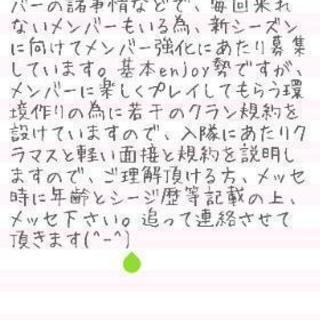 バーの諸事情などで、毎回来れ
ないメンバーもいる為、新シーズン
に向けてメンバー強化にあたり募集
しています。基本enjoy勢ですが、
メンバーに楽しくプレイしてもらう環
境作りの為に若干のクラン規約を
設けていますので、入隊にあたりクラ
マスと軽い面接と規約を説明し
ますので、ご理解頂ける方、メッセ
時に年齢とシージ歴等記載の上、
メッセ下さい。追って連絡させて
頂きます(^-^)